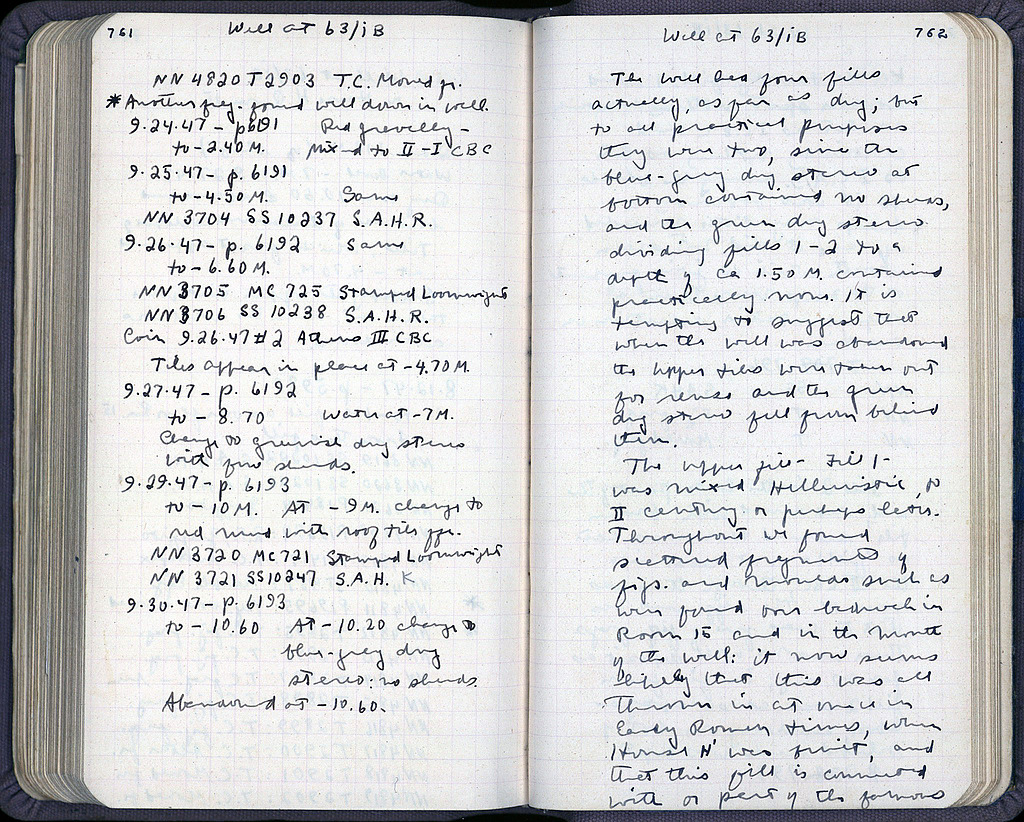 761
Well at 63/ΙΒ
NN 4820 T 2903 T.C. Mould fr.
* Another frag. found well down in well.
9.24.47 - p. 6191 Red gravelly -
to -2.40 M. Mixed to II - I C BC
9.25.47 - p. 6191
to -4.50 M. Same
NN 3704 SS 10237 S.A.H.R.
9.26.47 - p. 6192 Same
to -6.60 M.
NN 3705 MC 725 Stamped Loomweight
NN 3706 SS 10238 S.A.H.R.
Coin 9.26.47 #2 Athens III C BC
Tiles appear in place at -4.70 M.
9.27.47 - p. 6192
to -8.70 Water at -7 M.
Change to greenish dug stereo
with few sherds.
9.29.47 - p. 6193
to -10 M. At -9 M. change to
red mud with roof tile frr.
NN 3720 MC 721 Stamped Loomweight
NN 3721 SS 10247 S.A.H. K
9.30.47 - p. 6193
to -10.60 At -10.20 change to
blue-grey dug
stereo: no sherds.
Abandoned at -10.60.
762
Well at 63/ΙΒ
The well had four fills
actually, as far as dug; but
to all practical purposes
they were two, since the
blue-grey dug stereo at
bottom contained no sherds,
and the green dug stereo
dividing fills 1-2 to a
depth of ca 1.50 M. contained
practically none. It is
tempting to suggest that
when the well was abandoned
the upper tiles were taken out
for reuse and the green
dug stereo fell from behind
them.
The upper fill - Fill 1 -
was mixed Hellenistic, to
II century or perhaps later.
Throughout we found
scattered fragments of
figs. and moulds such as
were found over bedrock in
Room 15 and in the mouth
of the well: it now seems
likely that this was all
thrown in at once in
Early Roman times, when
House N' was built, and
that this fill is connected
with or part of the famous